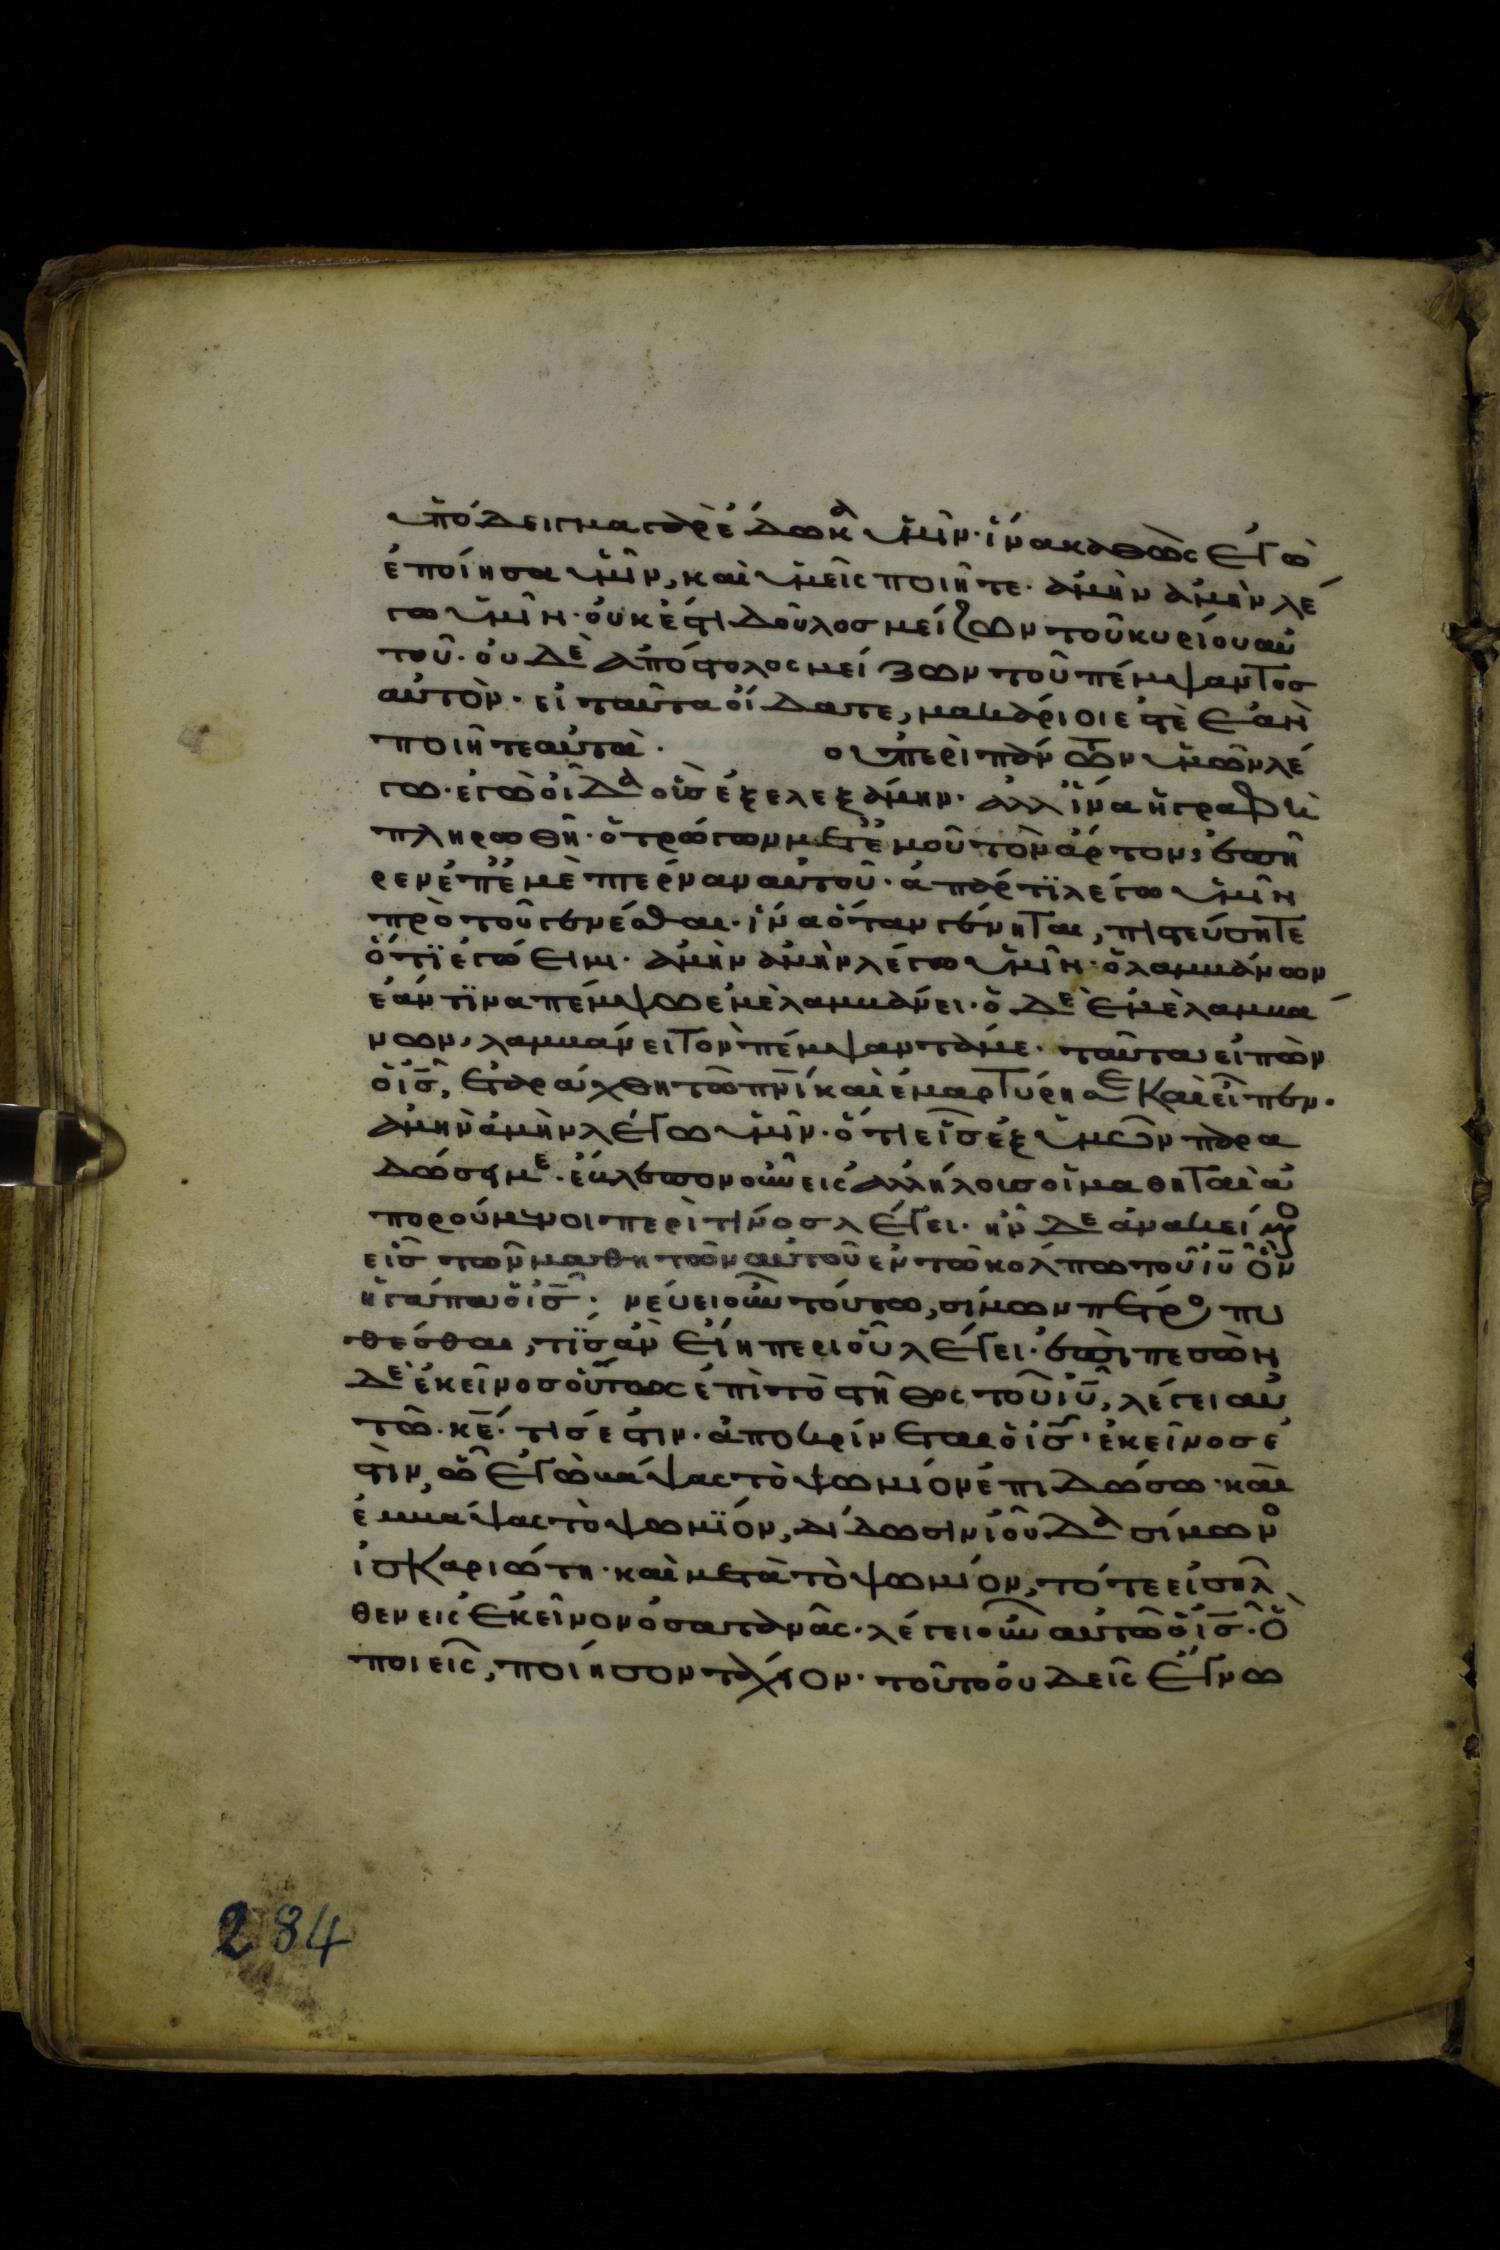 ὑπόδειγμα γὰρ ἔδωκα ὑμῖν· ἵνα καθὼς ἐγὼ
ἐποίησα ὑμῖν, καὶ ὑμεῖς ποιῆτε· ἀμὴν ἀμὴν λέ
γω ὑμῖν· οὐκ ἔστι δοῦλος μείζων τοῦ κυρίου αὐ
τοῦ· οὐδὲ ἀπόστολος μείζων τοῦ πέμψαντος
αὐτόν· εἰ ταῦτα οἴδατε, μακάριοι ἐστὲ ἐὰν
ποιῆτε αὐτά· οὐ περὶ πάντων ὑμῶν λέ
γω· ἐγὼ οἶδα οὓς ἐξελεξάμην· ἀλλ ἵνα ἡ γραφὴ
πληρωθῇ· ὁ τρώγων μετ ἐμοῦ τὸν ἄρτον, ἐπῆ
ρεν ἐπ ἐμὲ πτέρναν αὐτοῦ· ἀπάρτι λέγω ὑμῖν
πρὸ τοῦ γενέσθαι· ἵνα ὅταν γένηται, πιστεύσητε
ὅτι ἐγώ εἰμι· ἀμὴν ἀμὴν λέγω ὑμῖν· ὁ λαμβάνων
ἐάν τινα πέμψω ἐμὲ λαμβάνει· ὁ δὲ ἐμὲ λαμβά
νων, λαμβάνει τὸν πέμψαντά με· ταῦτα εἰπὼν
ὁ ις, ἐταράχθη τῶ πνι καὶ ἐμαρτύρησε καὶ εἶπεν·
ἀμὴν ἀμὴν λέγω ὑμῖν· ὅτι εἷς ἐξ ὑμῶν παρα
δώσει με· ἔβλεπον οὖν εἰς ἀλλήλους οἱ μαθηταὶ ἀ
πορούμενοι περὶ τίνος λέγει· ἦν δὲ ἀνακείμενος
εἷς τῶν μαθητῶν αὐτοῦ ἐν τῶ κόλπω τοῦ ιυ ὃν
ἠγάπα ὁ ις· νεύει οὖν τούτω, σίμων πέτρος πυ
θέσθαι, τίς ἂν εἴη περὶ οὗ λέγει· ἐπιπεσὼν
δὲ ἐκεῖνος οὕτως ἐπὶ τὸ στῆθος τοῦ ιυ, λέγει αὐ
τῶ· κε· τίς ἐστιν· ἀποκρίνεται ὁ ις· ἐκεῖνος ἐ
στιν, ᾧ ἐγὼ βάψας τὸ ψωμίον ἐπιδώσω· καὶ
ἐμβάψας τὸ ψωμίον, δίδωσιν ἰούδα σίμωνος
ἰσκαριώτη· καὶ μετὰ τὸ ψωμίον, τότε εἰσῆλ
θεν εἰς ἐκεῖνον ὁ σατανᾶς· λέγει οὖν αὐτῶ ὁ ις· ὃ
ποιεῖς, ποίησον τάχιον· τοῦτο οὐδεὶς ἔγνω
284